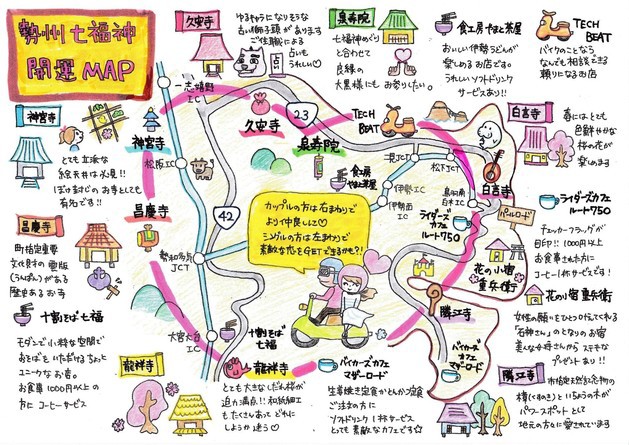 勢州七福神
開運MAP
久安寺
ゆるキャラになりそうな
古い獅子頭があります
ご住職による
占いも
うれしい♡
泉寿院
七福神めぐり
と合わせて
良縁の
大黒様にも お参りしたい。
食工房 やまと茶屋
おいしい伊勢うどんが
楽しめるお店です。
うれしい ソフトドリンク
サービスあり!!
TECH
BEAT
バイクのことなら
なんでも相談できる
頼りになるお店
神宮寺
とても立派な
絵天井は必見!!
ぼけ封じのお寺としても
有名です!!
昌慶寺
町指定重要
文化財の雲版
(うんぱん)がある
歴史あるお寺
十割そば 七福
モダンで小粋な空間で
おそばをいただけるちょっと
ユニークなお寺。
お食事1000円以上の
方にコーヒーサービス
龍祥寺
とても大きなだるま様が
迫力満点!! 和紙細工
もたくさんあって どれに
しようか迷う♡
バイカーズカフェ
マザーロード
生姜焼き定食かとんかつ定食
ご注文の方に
ソフトドリンク1杯サービス
とっても素敵なカフェです☆
白言寺
春にはとても
色鮮やかな
桜の花が
楽しめます
ライダーズカフェ
ルート750
チェッカーフラッグが
目印!! 1000円以上
お食事された方に
コーヒー1杯サービスです!
花の小宿 重兵衛
女性の願いをひとつ叶えてくれる
「石神さん」のとなりのお宿
美人な女将さんから ステキな
プレゼント あり!!
勝江寺
市指定天然記念物の
槙(まき)といちょうの木が
パワースポットとして
地元の方々に愛されています
一志嬉野
IC
久安寺
23
泉寿院
TECH
BEAT
神宮寺
松阪IC
食工房
やまと茶屋
二見IC
松下JCT
白言寺
伊勢IC
伊勢西
IC
鳥羽南
白木IC
ライダーズ
カフェ
ルート750
パールロード
昌慶寺
42
勢和多気
JCT
カップルの方は右まわりで
より仲良しに♡
シングルの方は左まわりで
素敵な恋をGETできるかも?!
花の小宿
重兵衛
勝江寺
大宮大台
IC
十割そば
七福
龍祥寺
バイカーズ
カフェ
マザーロード